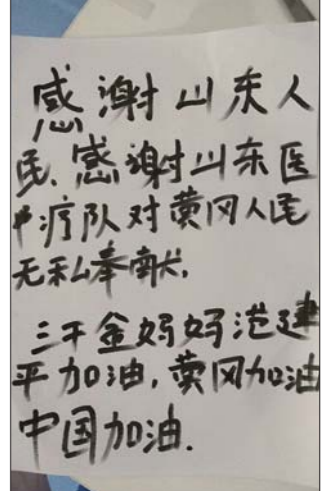 感谢山东人
民、感谢山东医
疗队对黄冈人民
无私奉献.
三千金妈妈范建
平加油,黄冈加油
中国加油.